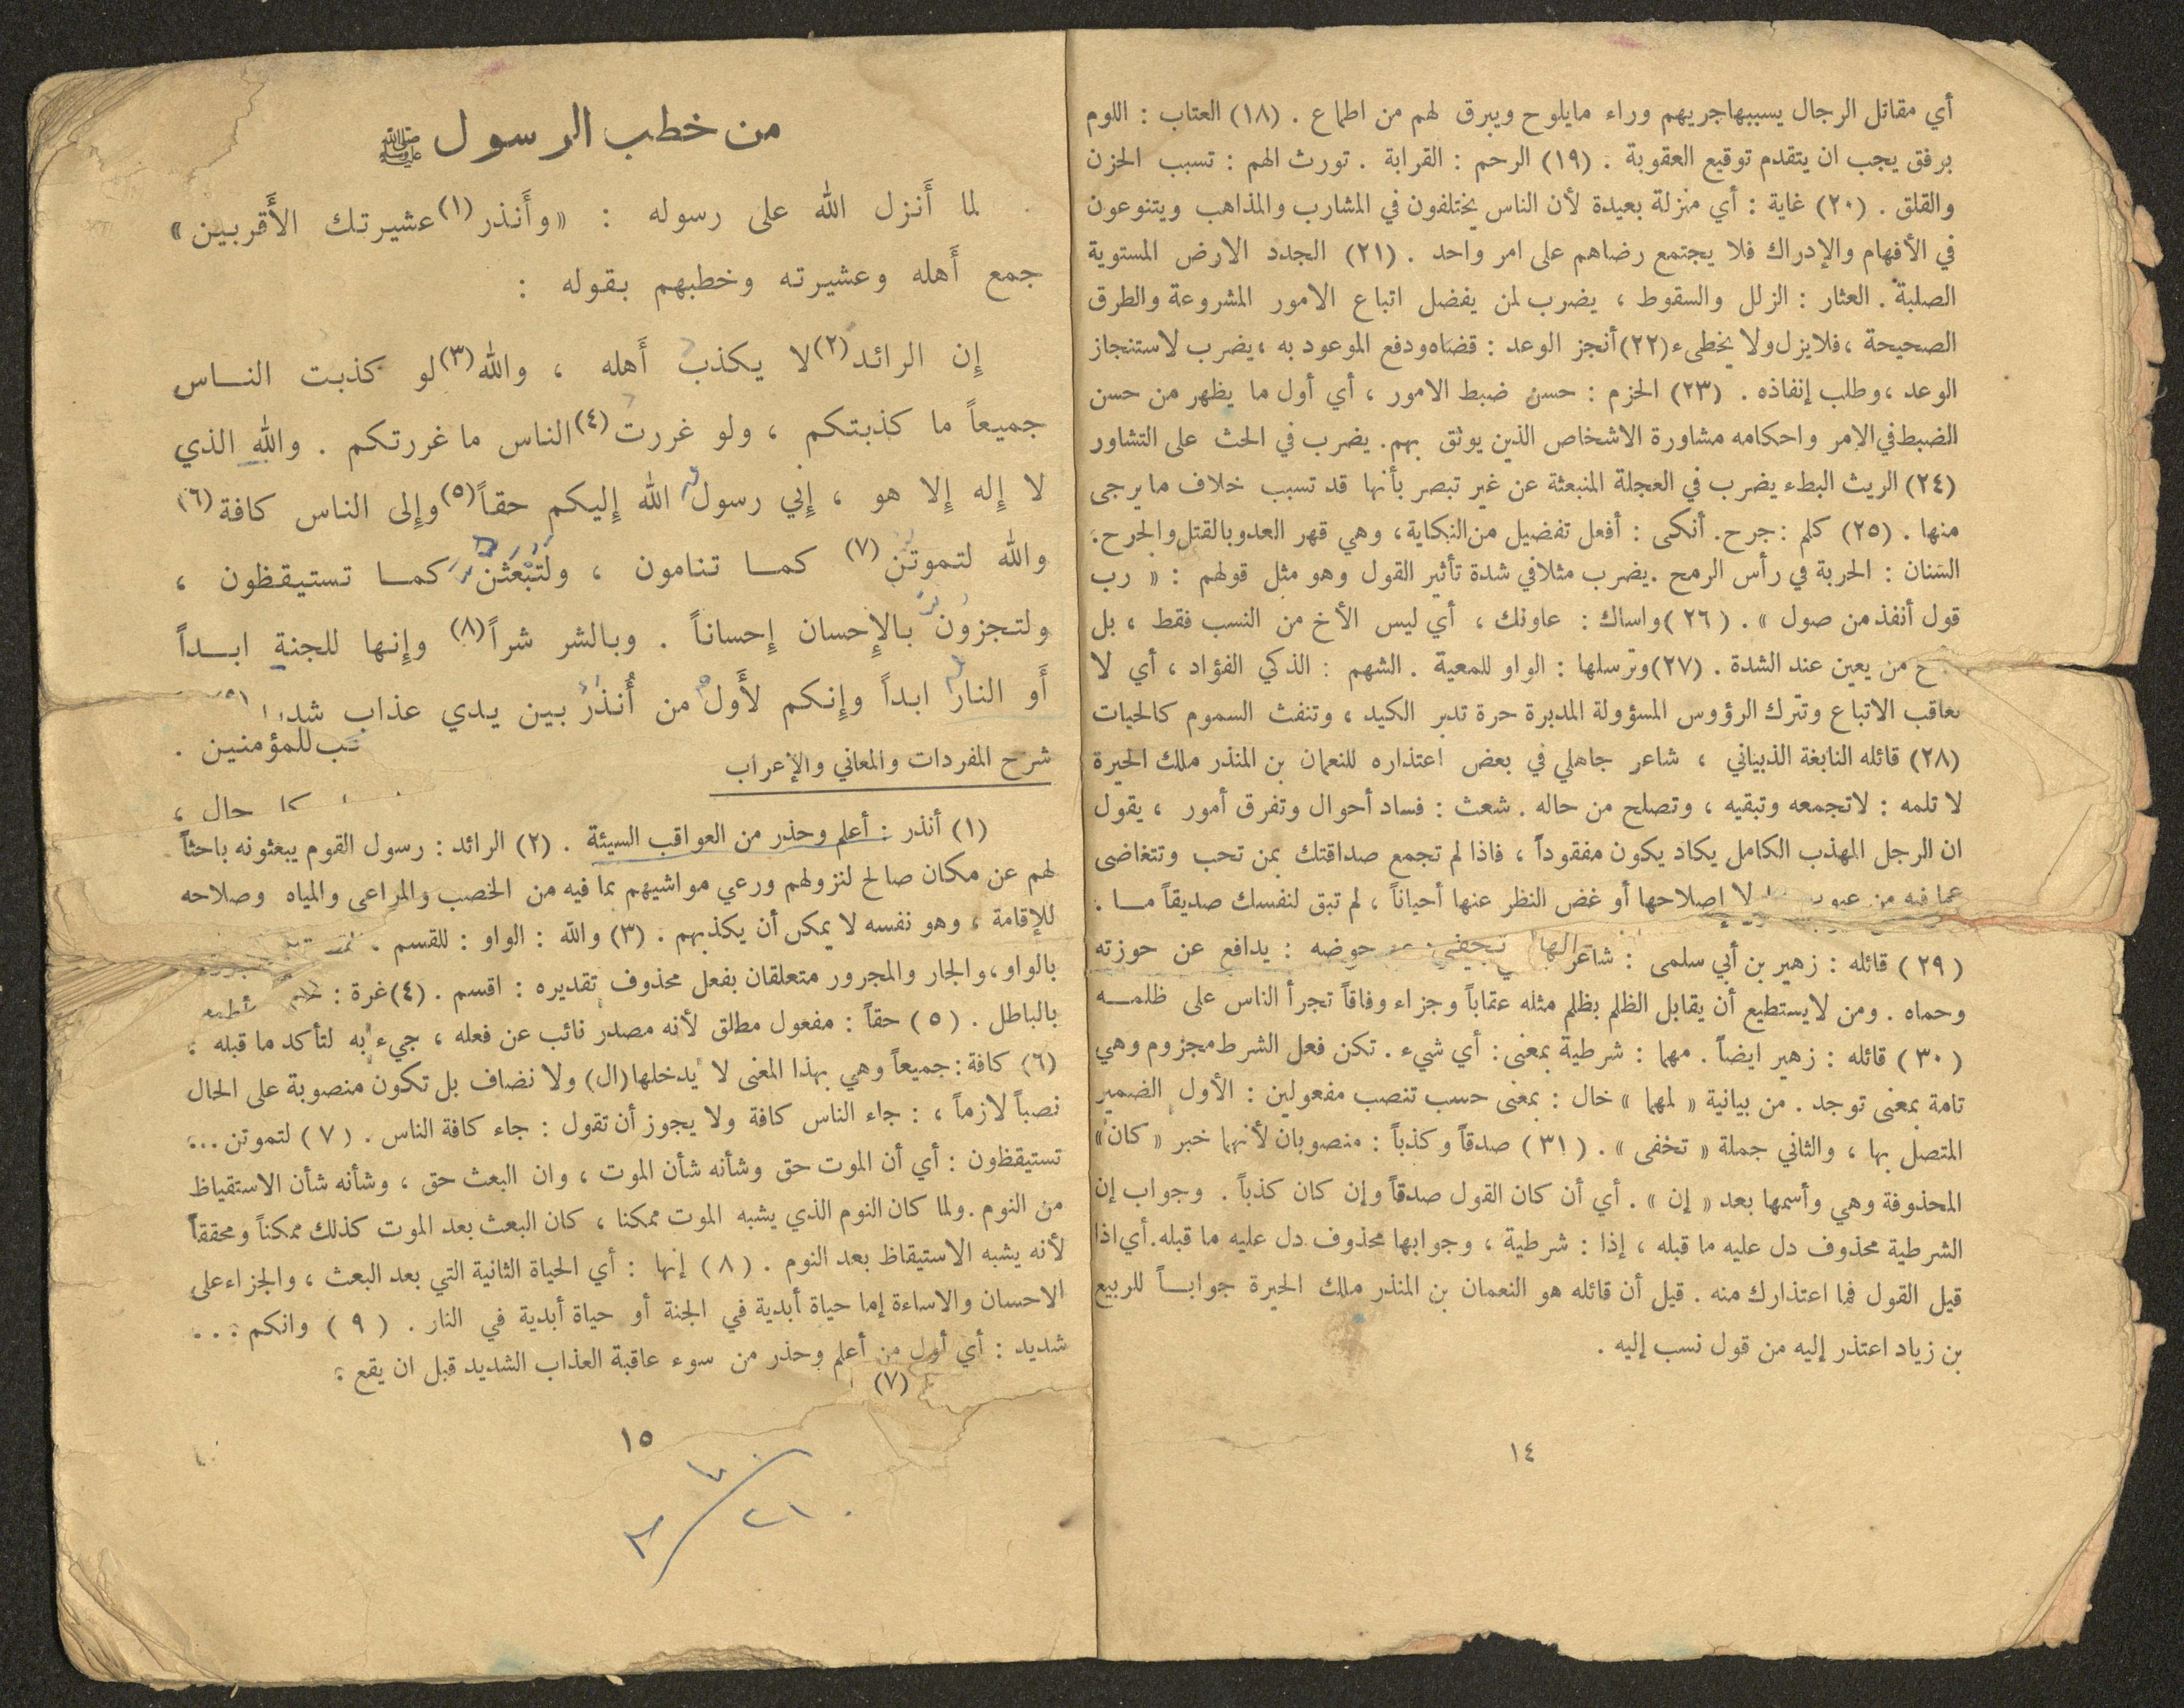 أي مقاتل الرجال يسببهاجريهم وراء مايلوح ويبرق لهم من اطماع . (١٨) العتاب : اللوم
برفق يجب ان يتقدم توقيع العقوبة . (١٩) الرحم : القرابة . تورث الهم : تسبب الحزن
والقلق . (٢٠) غاية : أي منزلة بعيدة لأن الناس يختلفون في المشارب والمذاهب ويتنوعون
في الأفهام والإدراك فلا يجتمع رضاهم على امر واحد . (٢١) الجدد الارض المستوية
الصلبة . العثار : الزلل والسقوط ، يضرب لمن يفضل اتباع الامور المشروعة والطرق
الصحيحة ، فلايزل ولا يخطىء (٢٢) أنجز الوعد : قضاه ودفع الموعود به ، يضرب لاستنجاز
الوعد ، وطلب إنفاذه . (٢٣) الحزم : حسن ضبط الامور ، أي أول ما يظهر من حسن
الضبط في الامر واحكامه مشاورة الاشخاص الذين يوثق بهم . يضرب في الحث على التشاور
(٢٤) الريث البطء يضرب في العجلة المنبعثة عن غير تبصر بأنها قد تسبب خلاف ما يرجى
منها . (٢٥) كلم : جرح . أنكى : أفعل تفضيل من النكاية ، وهي قهر العدو بالقتل والجرح .
السنان : الحربة في رأس الرمح . يضرب مثلا في شدة تأثير القول وهو مثل قولهم : « رب
قول أنفذ من صول » . (٢٦) واساك : عاونك ، أي ليس الأخ من النسب فقط ، بل
من يعين عند الشدة . (٢٧) وترسلها : الواو للمعية . الشهم : الذكي الفؤاد ، أي لا
تعاقب الاتباع وتترك الرؤوس المسؤولة المدبرة حرة تدبر الكيد ، وتنفث السموم كالحيات
(٢٨) قائله النابغة الذبياني ، شاعر جاهلي في بعض اعتذاره للنعمان بن المنذر ملك الحيرة
لا تلمه : لاتجمعه وتبقيه ، وتصلح من حاله . شعث : فساد أحوال وتفرق أمور ، يقول
ان الرجل المهذب الكامل يكاد يكون مفقوداً ، فاذا لم تجمع صداقتك بمن تحب وتتغاضى
عما فيه من لا إصلاحها أو غض النظر عنها أحياناً ، لم تبق لنفسك صديقاً مـا .
(٢٩) قائله : زهير بن أبي سلمى : شاعر حوضه : يدافع عن حوزته
وحماه . ومن لايستطيع أن يقابل الظلم بظلم مثله عقاباً وجزاء وفاقاً تجرأ الناس على ظلمـه
(٣٠) قائله : زهير ايضاً . مهما : شرطية بمعنى : أي شيء . تكن فعل الشرط مجزوم وهي
تامة بمعنى توجد . من بيانية « لمهما » خال : بمعنى حسب تنصب مفعولين : الأول الضمير
المتصل بها ، والثاني جملة « تخفى » . (٣١) صدقاً وكذباً : منصوبان لأنهما خبر « كان »
المحذوفة وهي وأسمها بعد « إن » . أي أن كان القول صدقاً وإن كان كذباً . وجواب إن
الشرطية محذوف دل عليه ما قبله ، إذا : شرطية ، وجوابها محذوف دل عليه ما قبله . أي اذا
قيل القول فما اعتذارك منه . قيل أن قائله هو النعمان بن المنذر ملك الحيرة جوابـاً للربيع
بن زياد اعتذر إليه من قول نسب إليه .
١٤
من خطب الرسول ﷺ
لما أَنزل الله على رسوله : « وأَنذر (١) عشيرتك الأَقربين »
جمع أَهله وعشيرته وخطبهم بقوله :
إِن الرائد (٢) لا يكذب أَهله ، والله (٣) لو كذبت النـاس
جميعاً ما كذبتكم ، ولو غررت (٤) الناس ما غررتكم . والله الذي
لا إِله إِلا هو ، إِني رسول الله إِليكم حقاً (٥) وإِلى الناس كافة (٦)
والله لتموتن (٧) كمـا تنامون ، ولتبعثن كمـا تستيقظون ،
ولتجزون بالإِحسان إِحساناً . وبالشر شراً (٨) وإِنها للجنة ابـداً
أَو النار ابداً وإِنكم لأَول من أُنذر بين يدي عذاب
للمؤمنين .
شرح المفردات والمعاني والإعراب
حال ،
(١) أنذر : أعلم وحذر من العواقب السيئة . (٢) الرائد : رسول القوم يبعثونه باحثاً
لهم عن مكان صالح لنزولهم ورعي مواشيهم بما فيه من الخصب والمراعي والمياه وصلاحه
للإقامة ، وهو نفسه لا يمكن أن يكذبهم . (٣) والله : الواو : للقسم .
بالواو ، والجار والمجرور متعلقان بفعل محذوف تقديره : اقسم . (٤) غرة :
بالباطل . (٥) حقاً : مفعول مطلق لأنه مصدر نائب عن فعله ، جيء به لتأكد ما قبله :
(٦) كافة : جميعاً وهي بهذا المعنى لا يدخلها (ال) ولا نضاف بل تكون منصوبة على الحال
نصباً لازماً ، : جاء الناس كافة ولا يجوز أن تقول : جاء كافة الناس . (٧) لتموتن ...
تستيقظون : أي أن الموت حق وشأنه شأن الموت ، وان البعث حق ، وشأنه شأن الاستقياظ
من النوم . ولما كان النوم الذي يشبه الموت ممكنا ، كان البعث بعد الموت كذلك ممكناً ومحققاً
لأنه يشبه الاستيقاظ بعد النوم . (٨) إنها : أي الحياة الثانية التي بعد البعث ، والجزاء على
الاحسان والاساءة إما حياة أبدية في الجنة أو حياة أبدية في النار . (٩) وانكم ...
شديد : أي أول من أعلم وحذر من سوء عاقبة العذاب الشديد قبل ان يقع .
(٧)
١٥